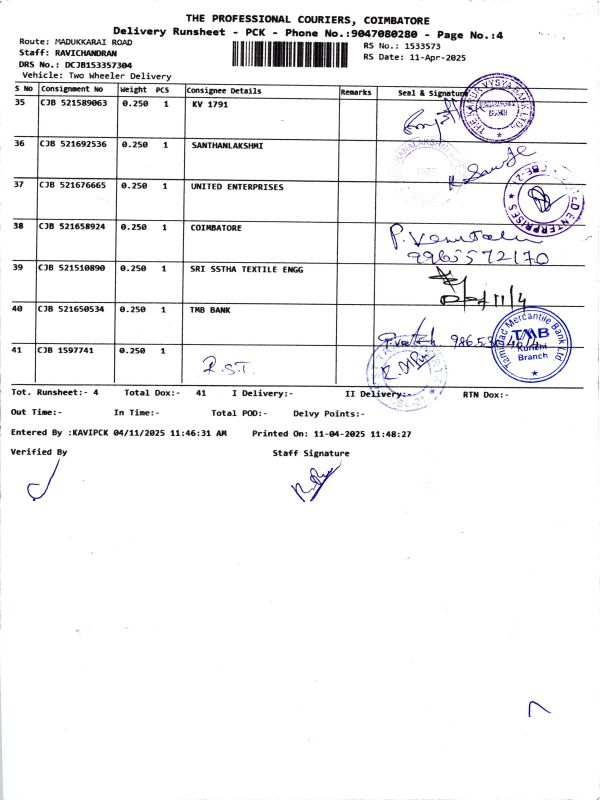 THE PROFESSIONAL COURIERS, COIMBATORE
Delivery Runsheet - PCK - Phone No.:9047080280 - Page No.:4
Route: MADUKKARAI ROAD
RS No.: 1533573
Staff: RAVICHANDRAN
RS Date: 11-Apr-2025
DRS No.: DCJB153357304
Vehicle: Two Wheeler Delivery
S No Consignment No Weight PCS Consignee Details Remarks Seal & Signature
35 CJB 521589063 0.250 1 KV 1791
THE KARUR VYSYA BANK LTD. BRANCH
36 CJB 521692536 0.250 1 SANTHANLAKSHMI
37 CJB 521676665 0.250 1 UNITED ENTERPRISES
38 CJB 521658924 0.250 1 COIMBATORE
9965572170
39 CJB 521510890 0.250 1 SRI SSTHA TEXTILE ENGG
40 CJB 521650534 0.250 1 TMB BANK
Tamilnad Mercantile Bank Ltd
TMB
Kurichi
Branch
41 CJB 1597741 0.250 1
R.S.T.
Tot. Runsheet:- 4 Total Dox:- 41 I Delivery:- II Delivery:- RTN Dox:-
Out Time:- In Time:- Total POD:- Delvy Points:-
Entered By :KAVIPCK 04/11/2025 11:46:31 AM Printed On: 11-04-2025 11:48:27
Verified By Staff Signature